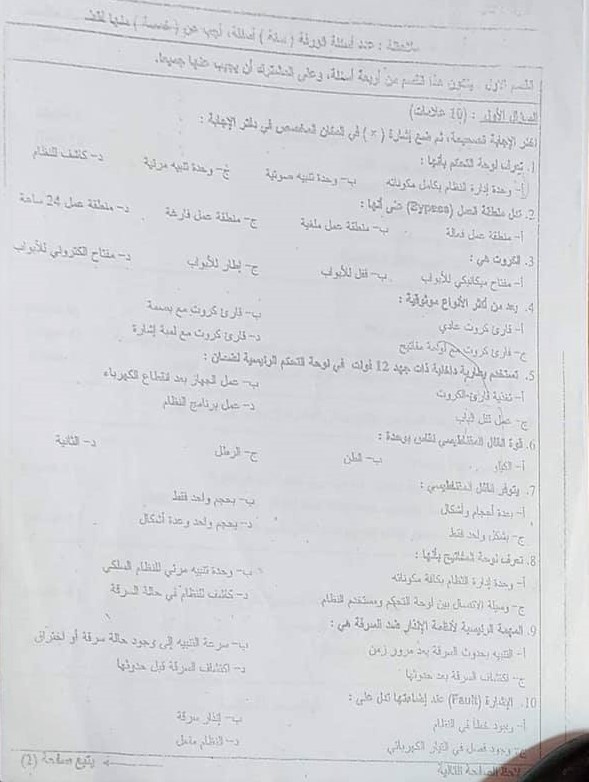 ملاحظة : عدد أسئلة الورقة ( ستة ) أسئلة، أجب عن ( خمسة ) منها فقط.
القسم الأول : يتكون هذا القسم من أربعة أسئلة، وعلى المشترك أن يجيب عنها جميعا.
السؤال الأول : (10 علامات)
اختر الإجابة الصحيحة، ثم ضع إشارة ( × ) في المكان المخصص في دفتر الإجابة :
1. تعرف لوحة التحكم بأنها :
أ- وحدة إدارة النظام بكامل مكوناته ب- وحدة تنبيه صوتية ج- وحدة تنبيه مرئية د- كاشف للنظام
2. تدل منطقة العمل (Bypass) على أنها :
أ- منطقة عمل فعالة ب- منطقة عمل ملغية ج- منطقة عمل فارغة د- منطقة عمل 24 ساعة
3. الكروت هي :
أ- مفتاح ميكانيكي للأبواب ب- قفل للأبواب ج- إطار للأبواب د- مفتاح الكتروني للأبواب
4. يعد من أكثر الأنواع موثوقية :
أ- قارئ كروت عادي ب- قارئ كروت مع بصمة
ج- قارئ كروت مع لوحة مفاتيح د- قارئ كروت مع لمبة إشارة
5. تستخدم بطارية داخلية ذات جهد 12 فولت في لوحة التحكم الرئيسية لضمان :
أ- تغذية قارئ الكروت ب- عمل الجهاز بعد انقطاع الكهرباء
ج- عمل قفل الباب د- عمل برنامج النظام
6. قوة القفل المغناطيسي تقاس بوحدة :
أ- الكيلو ب- الطن ج- الرطل د- الثانية
7. يتوفر القفل المغناطيسي :
أ- بعدة أحجام وأشكال ب- بحجم واحد فقط
ج- بشكل واحد فقط د- بحجم واحد وعدة أشكال
8. تعرف لوحة المفاتيح بأنها :
أ- وحدة إدارة النظام بكافة مكوناته ب- وحدة تنبيه مرئي للنظام السلكي
ج- وسيلة الاتصال بين لوحة التحكم ومستخدم النظام د- كاشف للنظام في حالة السرقة
9. المهمة الرئيسية لأنظمة الإنذار ضد السرقة هي :
أ- التنبيه بحدوث السرقة بعد مرور زمن ب- سرعة التنبيه إلى وجود حالة سرقة أو اختراق
ج- اكتشاف السرقة بعد حدوثها د- اكتشاف السرقة قبل حدوثها
10. الإشارة (Fault) عند إضاءتها تدل على :
أ- وجود خطأ في النظام ب- إنذار سرقة
ج- وجود فصل في التيار الكهربائي د- النظام مفعل
لاحظ الصفحة التالية يتبع صفحة (2)